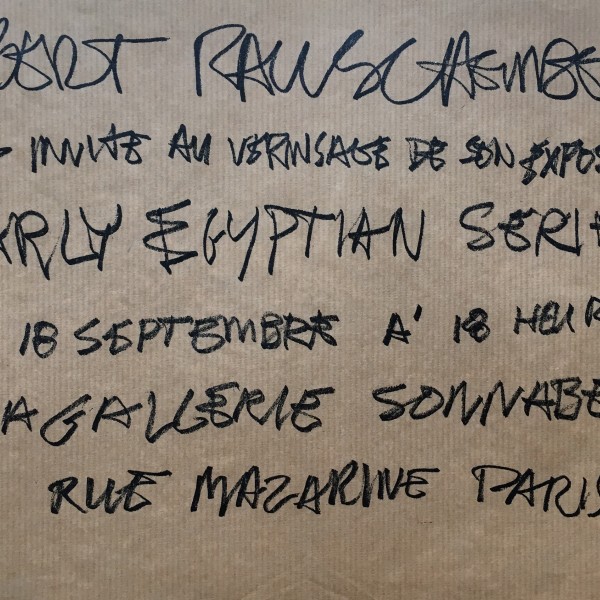 BERT RAUSCHENBE
INVITE AU VERINSAGE DE SON EXPOS
ARLY EGYPTIAN SERIE
18 SEPTEMBRE A' 18 HEUR
A GALLERIE SONNABE
RUE MAZARINE PARIS